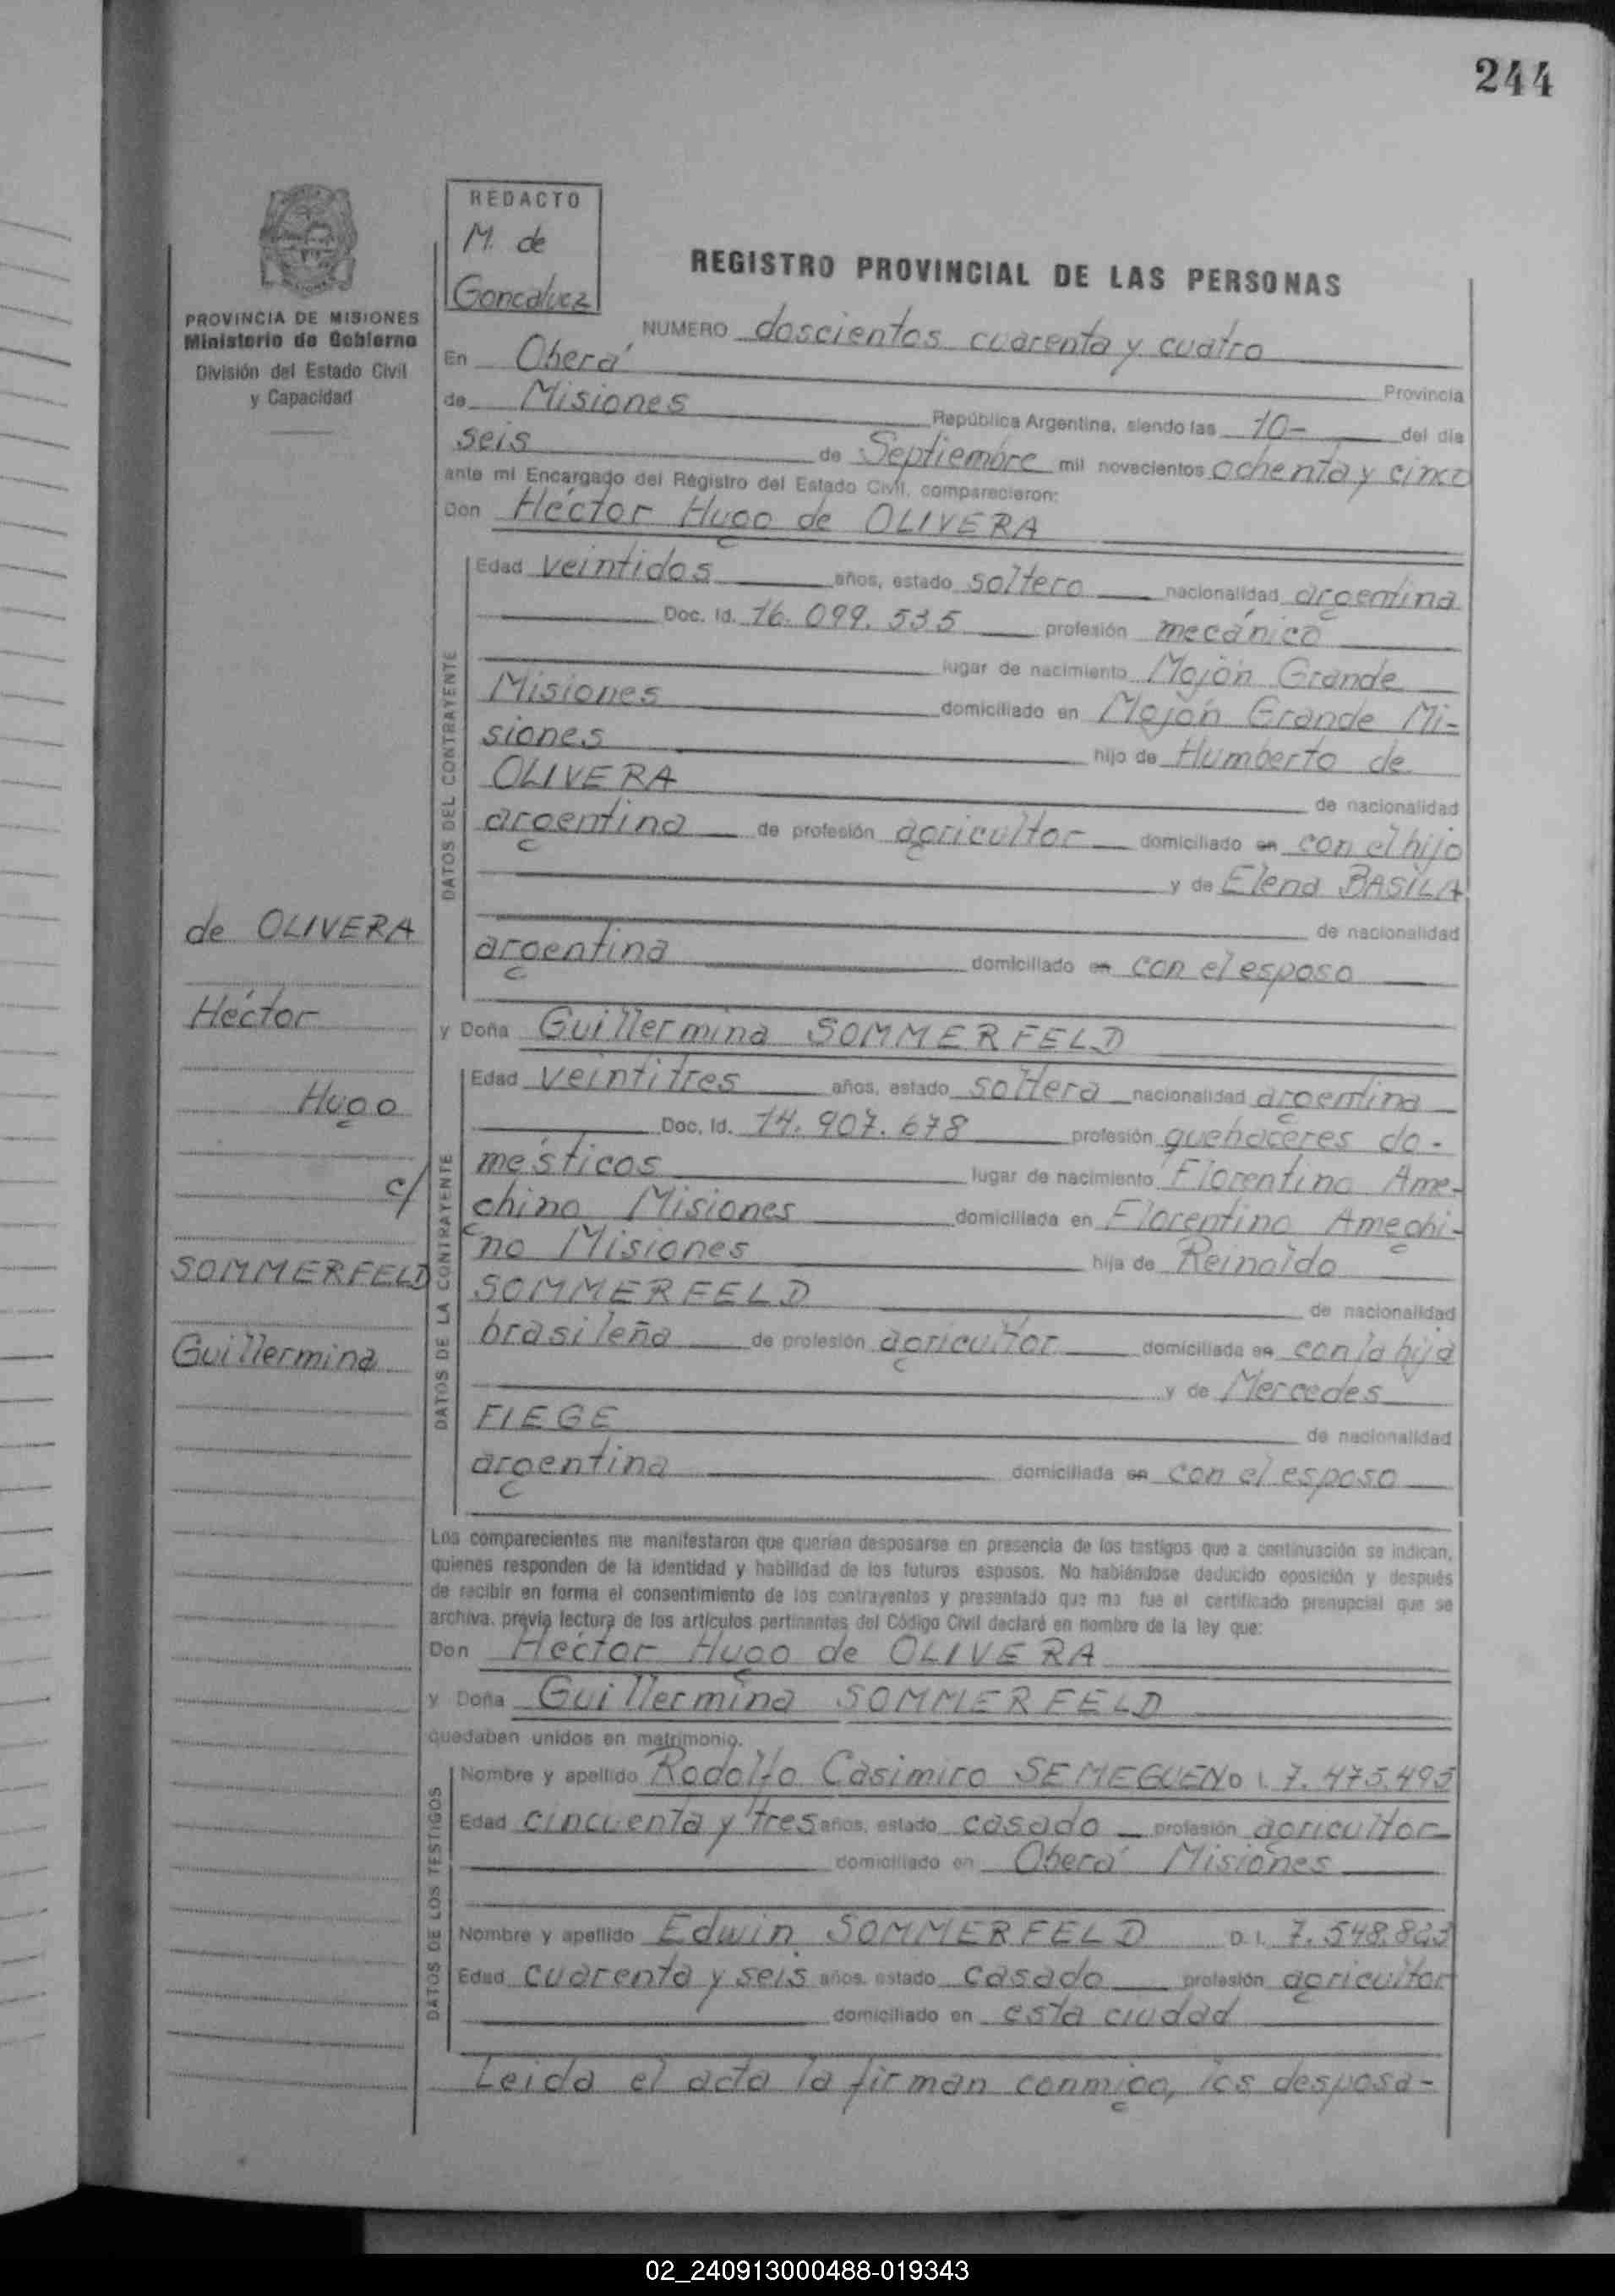 244
REDACTO
M. de
Goncalvez
PROVINCIA DE MISIONES
Ministerio de Gobierno
División del Estado Civil
y Capacidad
REGISTRO PROVINCIAL DE LAS PERSONAS
NUMERO doscientos cuarenta y cuatro
En Oberá Provincia
de Misiones República Argentina, siendo las 10- del día
seis de Septiembre mil novecientos ochenta y cinco
ante mi Encargado del Registro del Estado Civil, comparecieron:
Don Héctor Hugo de OLIVERA
DATOS DEL CONTRAYENTE
Edad veintidos años, estado soltero nacionalidad argentina
Doc. Id. 16.099.535 profesión mecánico
lugar de nacimiento Mojón Grande
Misiones domiciliado en Mojón Grande Mi-
siones hijo de Humberto de
OLIVERA de nacionalidad
argentina de profesión agricultor domiciliado en con el hijo
y de Elena BASILA
de nacionalidad
argentina domiciliado en con el esposo
y Doña Guillermina SOMMERFELD
DATOS DE LA CONTRAYENTE
Edad veintitres años, estado soltera nacionalidad argentina
Doc. Id. 14.907.678 profesión quehaceres do-
mésticos lugar de nacimiento Florentino Ame-
ghino Misiones domiciliada en Florentino Ameghi-
no Misiones hija de Reinoldo
SOMMERFELD de nacionalidad
brasileña de profesión agricultor domiciliada en con la hija
y de Mercedes
FIEGE de nacionalidad
argentina domiciliada en con el esposo
de OLIVERA
Héctor
Hugo
c/
SOMMERFELD
Guillermina
Los comparecientes me manifestaron que querían desposarse en presencia de los testigos que a continuación se indican,
quienes responden de la identidad y habilidad de los futuros esposos. No habiéndose deducido oposición y después
de recibir en forma el consentimiento de los contrayentes y presentado que me fue el certificado prenupcial que se
archiva, previa lectura de los artículos pertinentes del Código Civil declaré en nombre de la ley que:
Don Héctor Hugo de OLIVERA
y Doña Guillermina SOMMERFELD
quedaban unidos en matrimonio.
DATOS DE LOS TESTIGOS
Nombre y apellido Rodolfo Casimiro SEMEGUEN D I. 7.475.495
Edad cincuenta y tres años, estado casado profesión agricultor
domiciliado en Oberá Misiones
Nombre y apellido Edwin SOMMERFELD D. I. 7.548.823
Edad cuarenta y seis años, estado casado profesión agricultor
domiciliado en esta ciudad
Leida el acta la firman conmigo, los desposa-
02_240913000488-019343